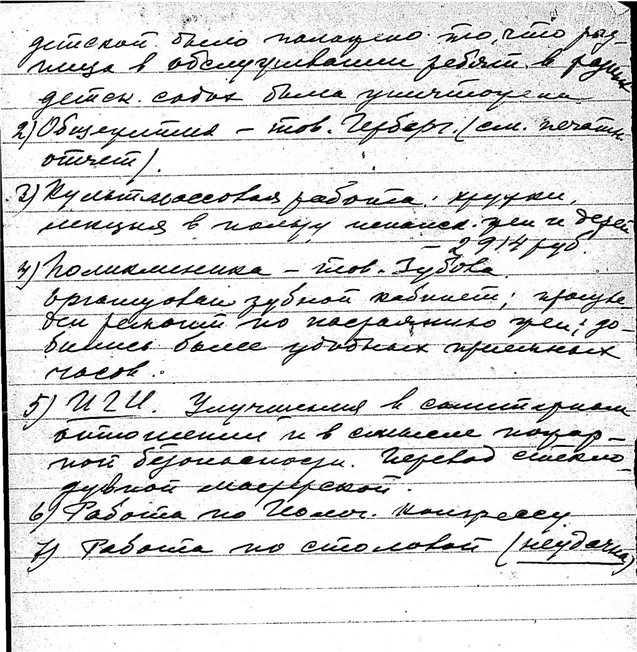 детской было положено то, что раз-
ница в обслуживании ребят в разных
детск. садах была уничтожена
2) Общежития – тов. Герберг. (см. печатн.
отчет).
3) Культмассовая работа: кружки,
лекция в пользу испанск. жен и детей
– 2914 руб.
4) Поликлиника – тов. Зубова.
Организован зубной кабинет; произве-
ден ремонт по настоянию жен; до-
бились более удобных приемных
часов.
5) ИГИ. Улучшения в санитарном
отношении и в смысле пожар-
ной безопасности. Перевод стекло-
дувной мастерской.
6) Работа по Геолог. конгрессу
7) Работа по столовой (неудачна)